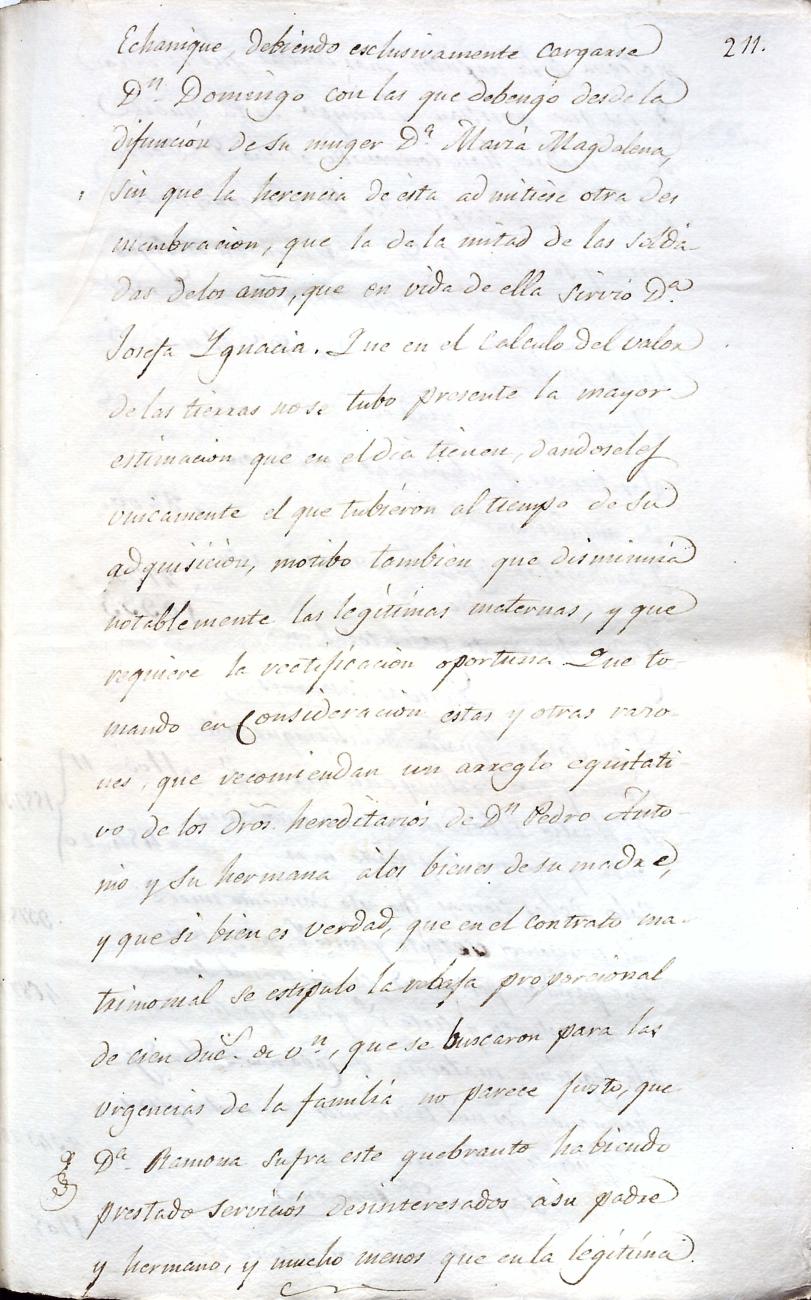 211.
Echanique, debiendo esclusivamente cargarse
Dn. Domingo con las que debengó desde la
difunción de su muger Da. Maria Magdalena,
sin que la herencia de ésta admitiese otra des
membracion, que la de la mitad de las solda
das de los años, que en vida de ella sirvió Da.
Josefa Ygnacia. Que en el calculo del valor
de las tierras no se tubo presente la mayor
estimacion que en el dia tienen, dandoseles
unicamente el que tubieron al tiempo de su
adquisicion, motibo tambien que disminuia
notablemente las legítimas maternas, y que
requiere la rectificacion oportuna. Que to-
mando en Consideracion estas y otras razo
nes, que recomiendan un arreglo equitati-
vo de los dros. hereditarios de Dn. Pedro Anto-
nio y su hermana à los bienes de su madre,
y que si bien es verdad, que en el contrato ma-
trimonial se estipuló la rebaja proporcional
de cien ducs. de vn., que se buscaron para las
urgencias de la familia no parece justo, que
Da. Ramona sufra este quebranto habiendo
prestado servicios desinteresados à su padre
y hermano, y mucho menos que en la legítima